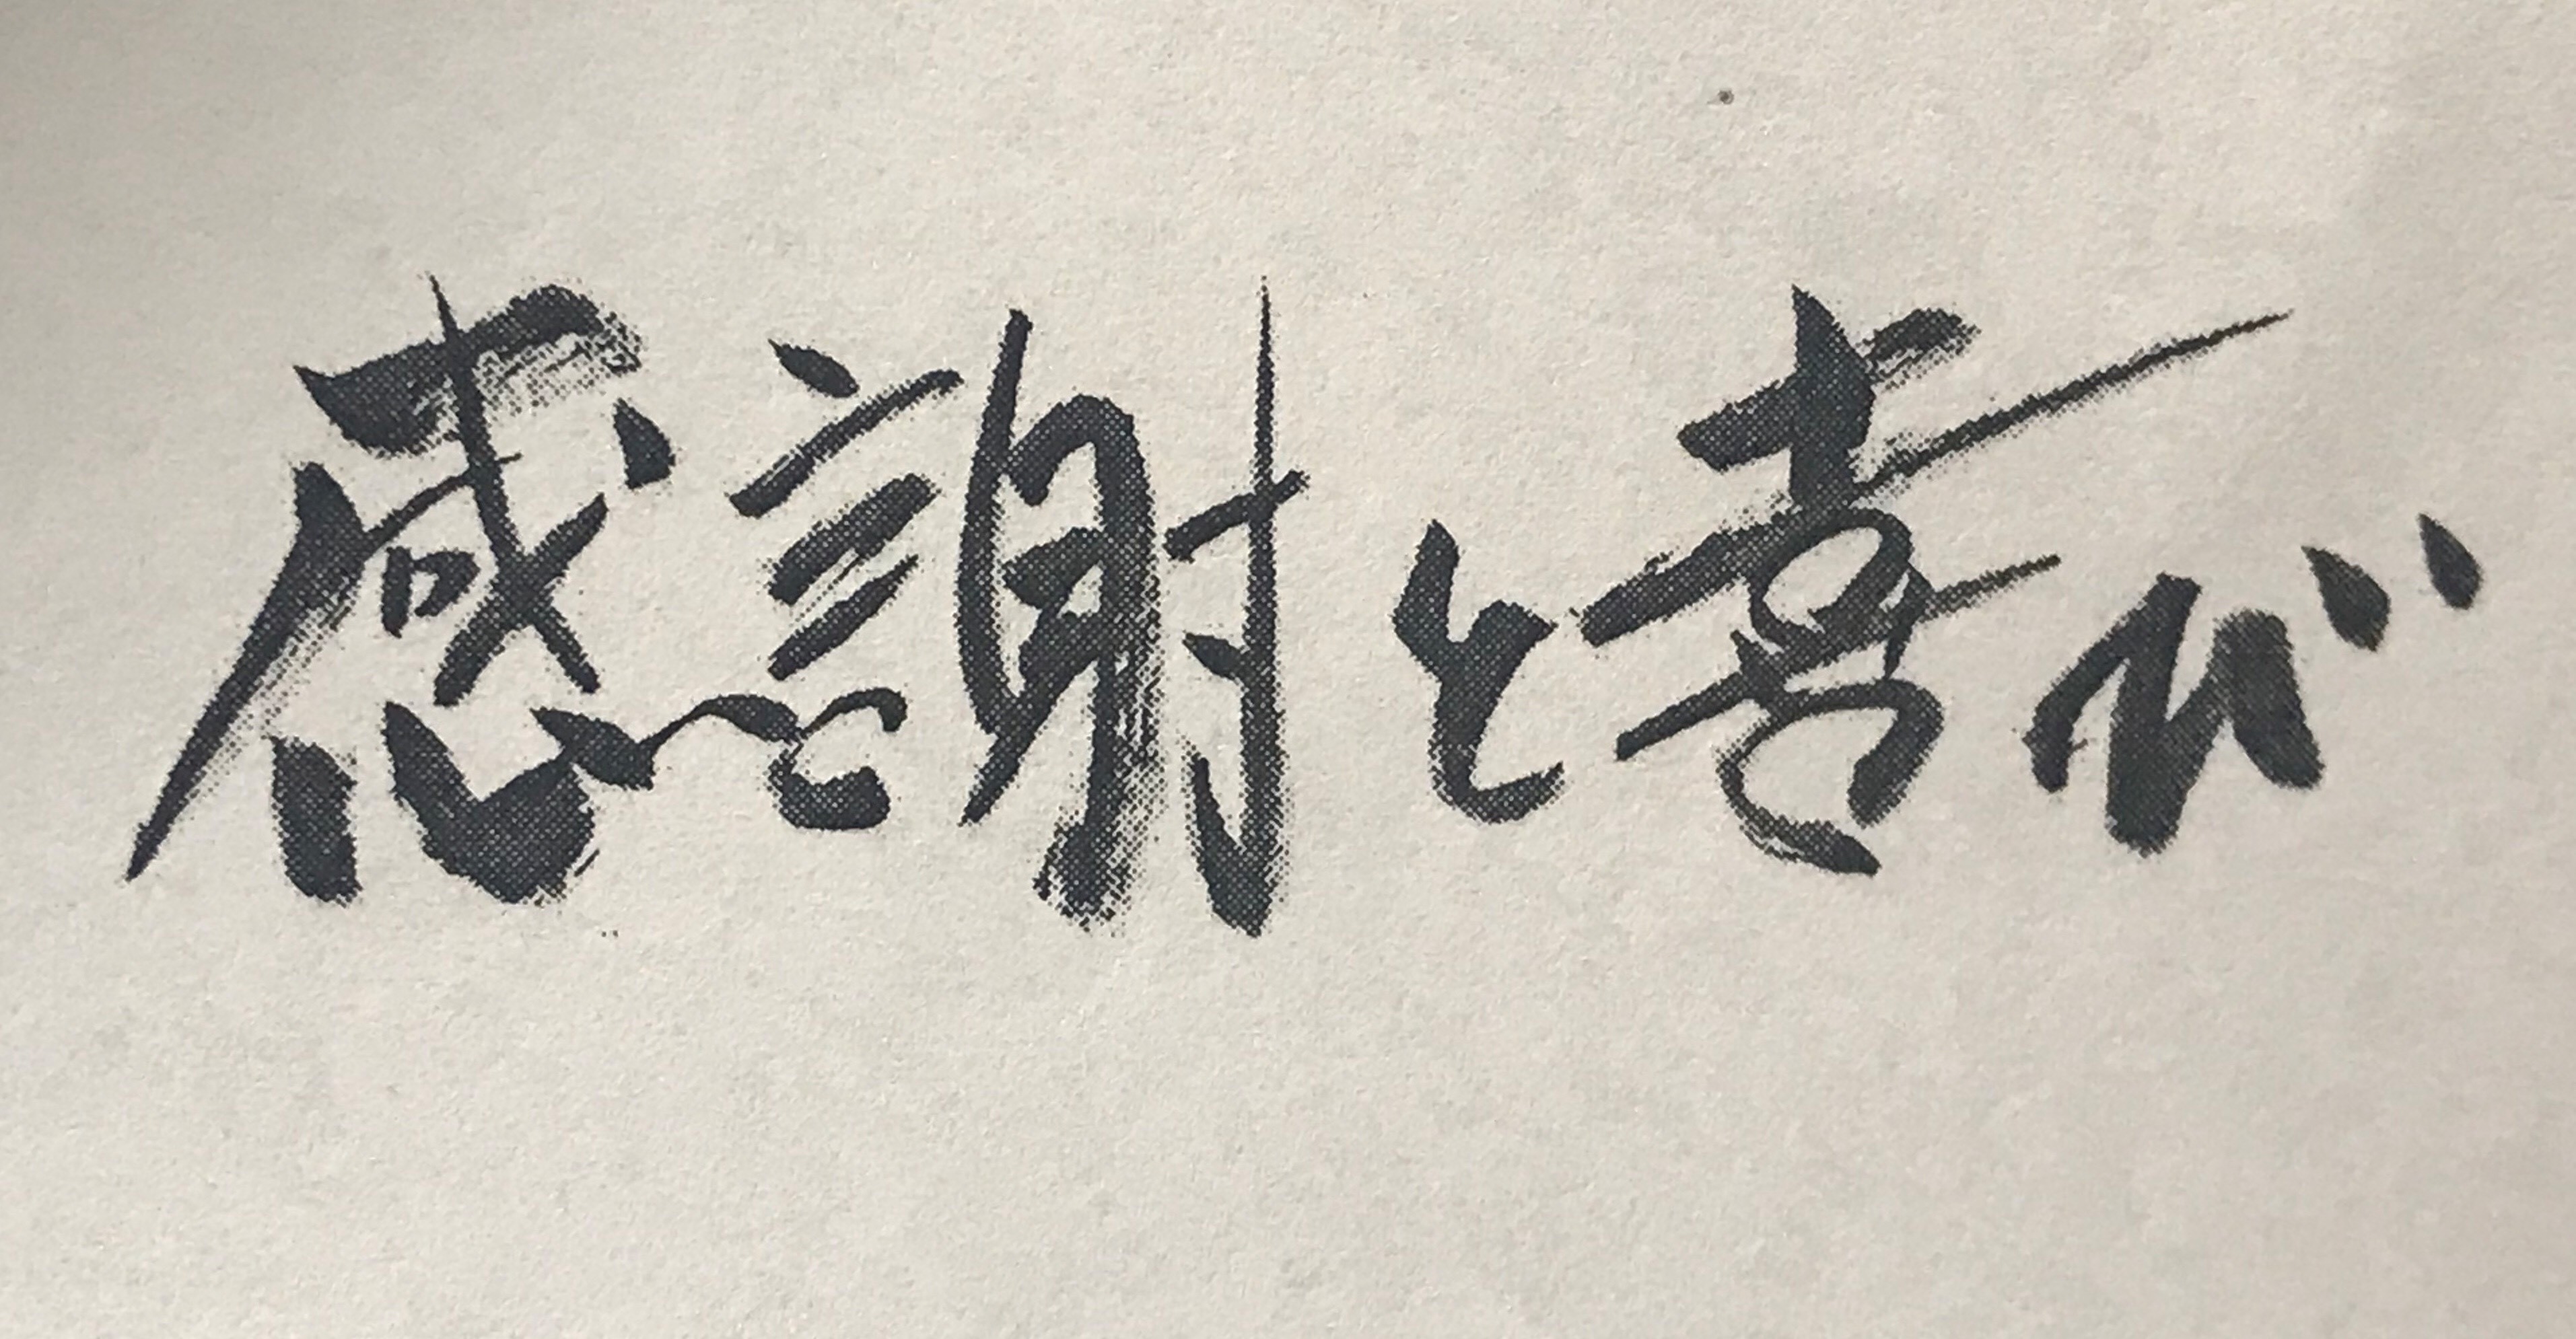 感謝と喜び